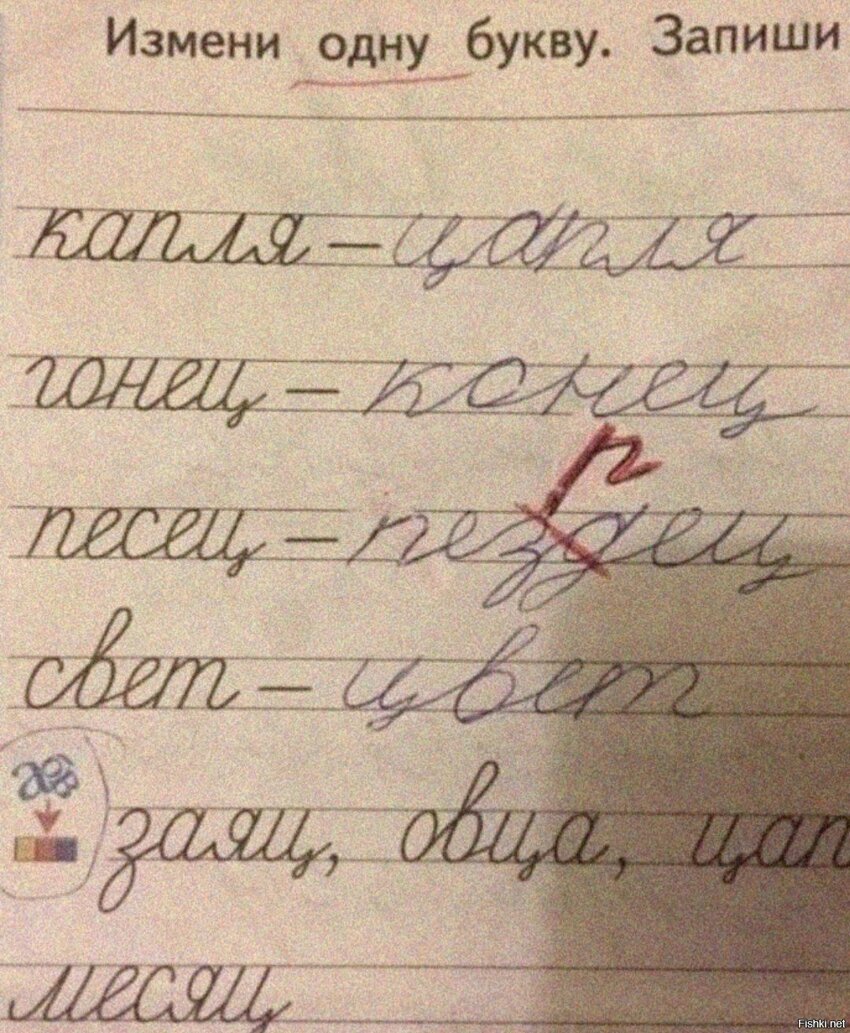 Измени одну букву. Запиши
капля – цапля
гонец – конец
п
песец – пездец
свет – цвет
заяц, овца, цап
месяц
Fishki.net